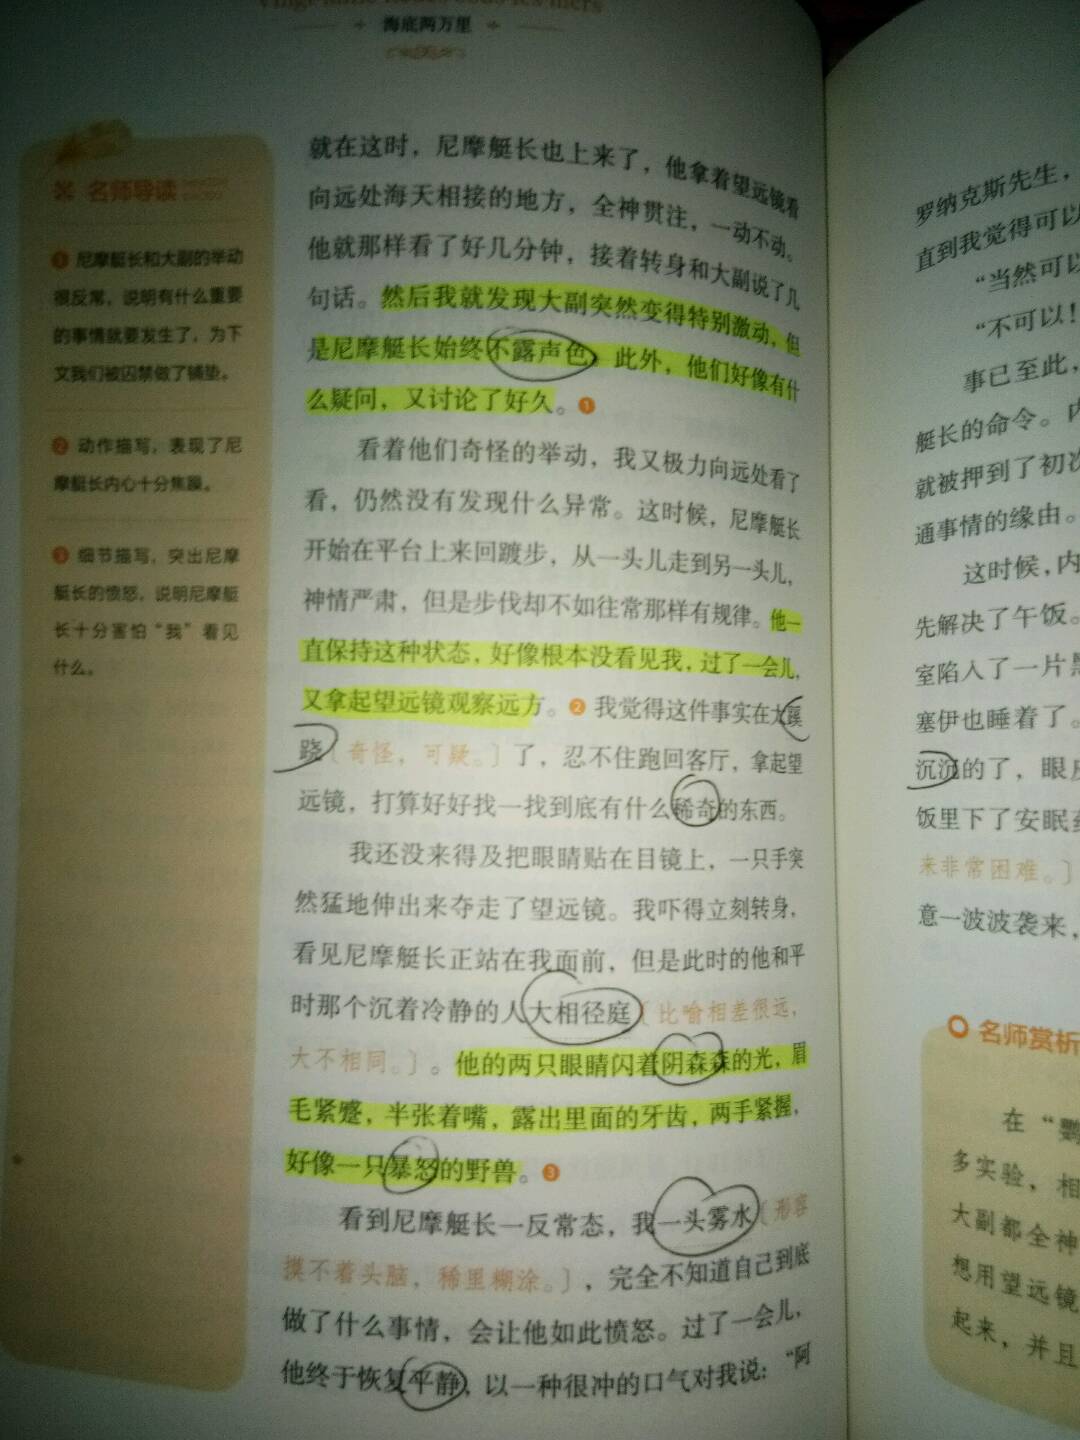 Vingt mille lieues sous les mers
海底两万里
名师导读
❶ 尼摩艇长和大副的举动
很反常，说明有什么重要
的事情就要发生了，为下
文我们被囚禁做了铺垫。
❷ 动作描写，表现了尼
摩艇长内心十分焦躁。
❸ 细节描写，突出尼摩
艇长的愤怒，说明尼摩艇
长十分害怕“我”看见
什么。
就在这时，尼摩艇长也上来了，他拿着望远镜看
向远处海天相接的地方，全神贯注，一动不动。
他就那样看了好几分钟，接着转身和大副说了几
句话。然后我就发现大副突然变得特别激动，但
是尼摩艇长始终不露声色。此外，他们好像有什
么疑问，又讨论了好久。❶
看着他们奇怪的举动，我又极力向远处看了
看，仍然没有发现什么异常。这时候，尼摩艇长
开始在平台上来回踱步，从一头儿走到另一头儿，
神情严肃，但是步伐却不如往常那样有规律。他一
直保持这种状态，好像根本没看见我，过了一会儿，
又拿起望远镜观察远方。❷ 我觉得这件事实在太蹊
跷〔奇怪，可疑。〕了，忍不住跑回客厅，拿起望
远镜，打算好好找一找到底有什么稀奇的东西。
我还没来得及把眼睛贴在目镜上，一只手突
然猛地伸出来夺走了望远镜。我吓得立刻转身，
看见尼摩艇长正站在我面前，但是此时的他和平
时那个沉着冷静的人大相径庭〔比喻相差很远，
大不相同。〕。他的两只眼睛闪着阴森森的光，眉
毛紧蹙，半张着嘴，露出里面的牙齿，两手紧握，
好像一只暴怒的野兽。❸
看到尼摩艇长一反常态，我一头雾水〔形容
摸不着头脑，稀里糊涂。〕，完全不知道自己到底
做了什么事情，会让他如此愤怒。过了一会儿，
他终于恢复平静，以一种很冲的口气对我说：“阿
罗纳克斯先生，
直到我觉得可以
“当然可以
“不可以！
事已至此，
艇长的命令。
就被押到了初次
通事情的缘由。
这时候，内
先解决了午饭。
室陷入了一片黑
塞伊也睡着了。
沉沉的了，眼皮
饭里下了安眠药
来非常困难。〕
意一波波袭来，
名师赏析
在“鹦
多实验，相
大副都全神
想用望远镜
起来，并且